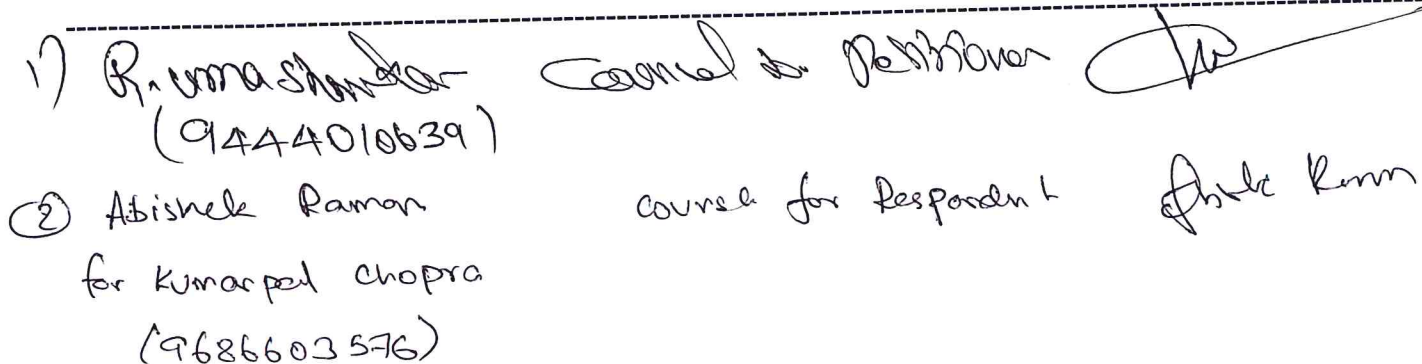 1) R. Umashankar Counsel for Petitioner
(9444010639)
② Abishek Raman counsel for Respondent
for Kumarpal Chopra
(9686603576)